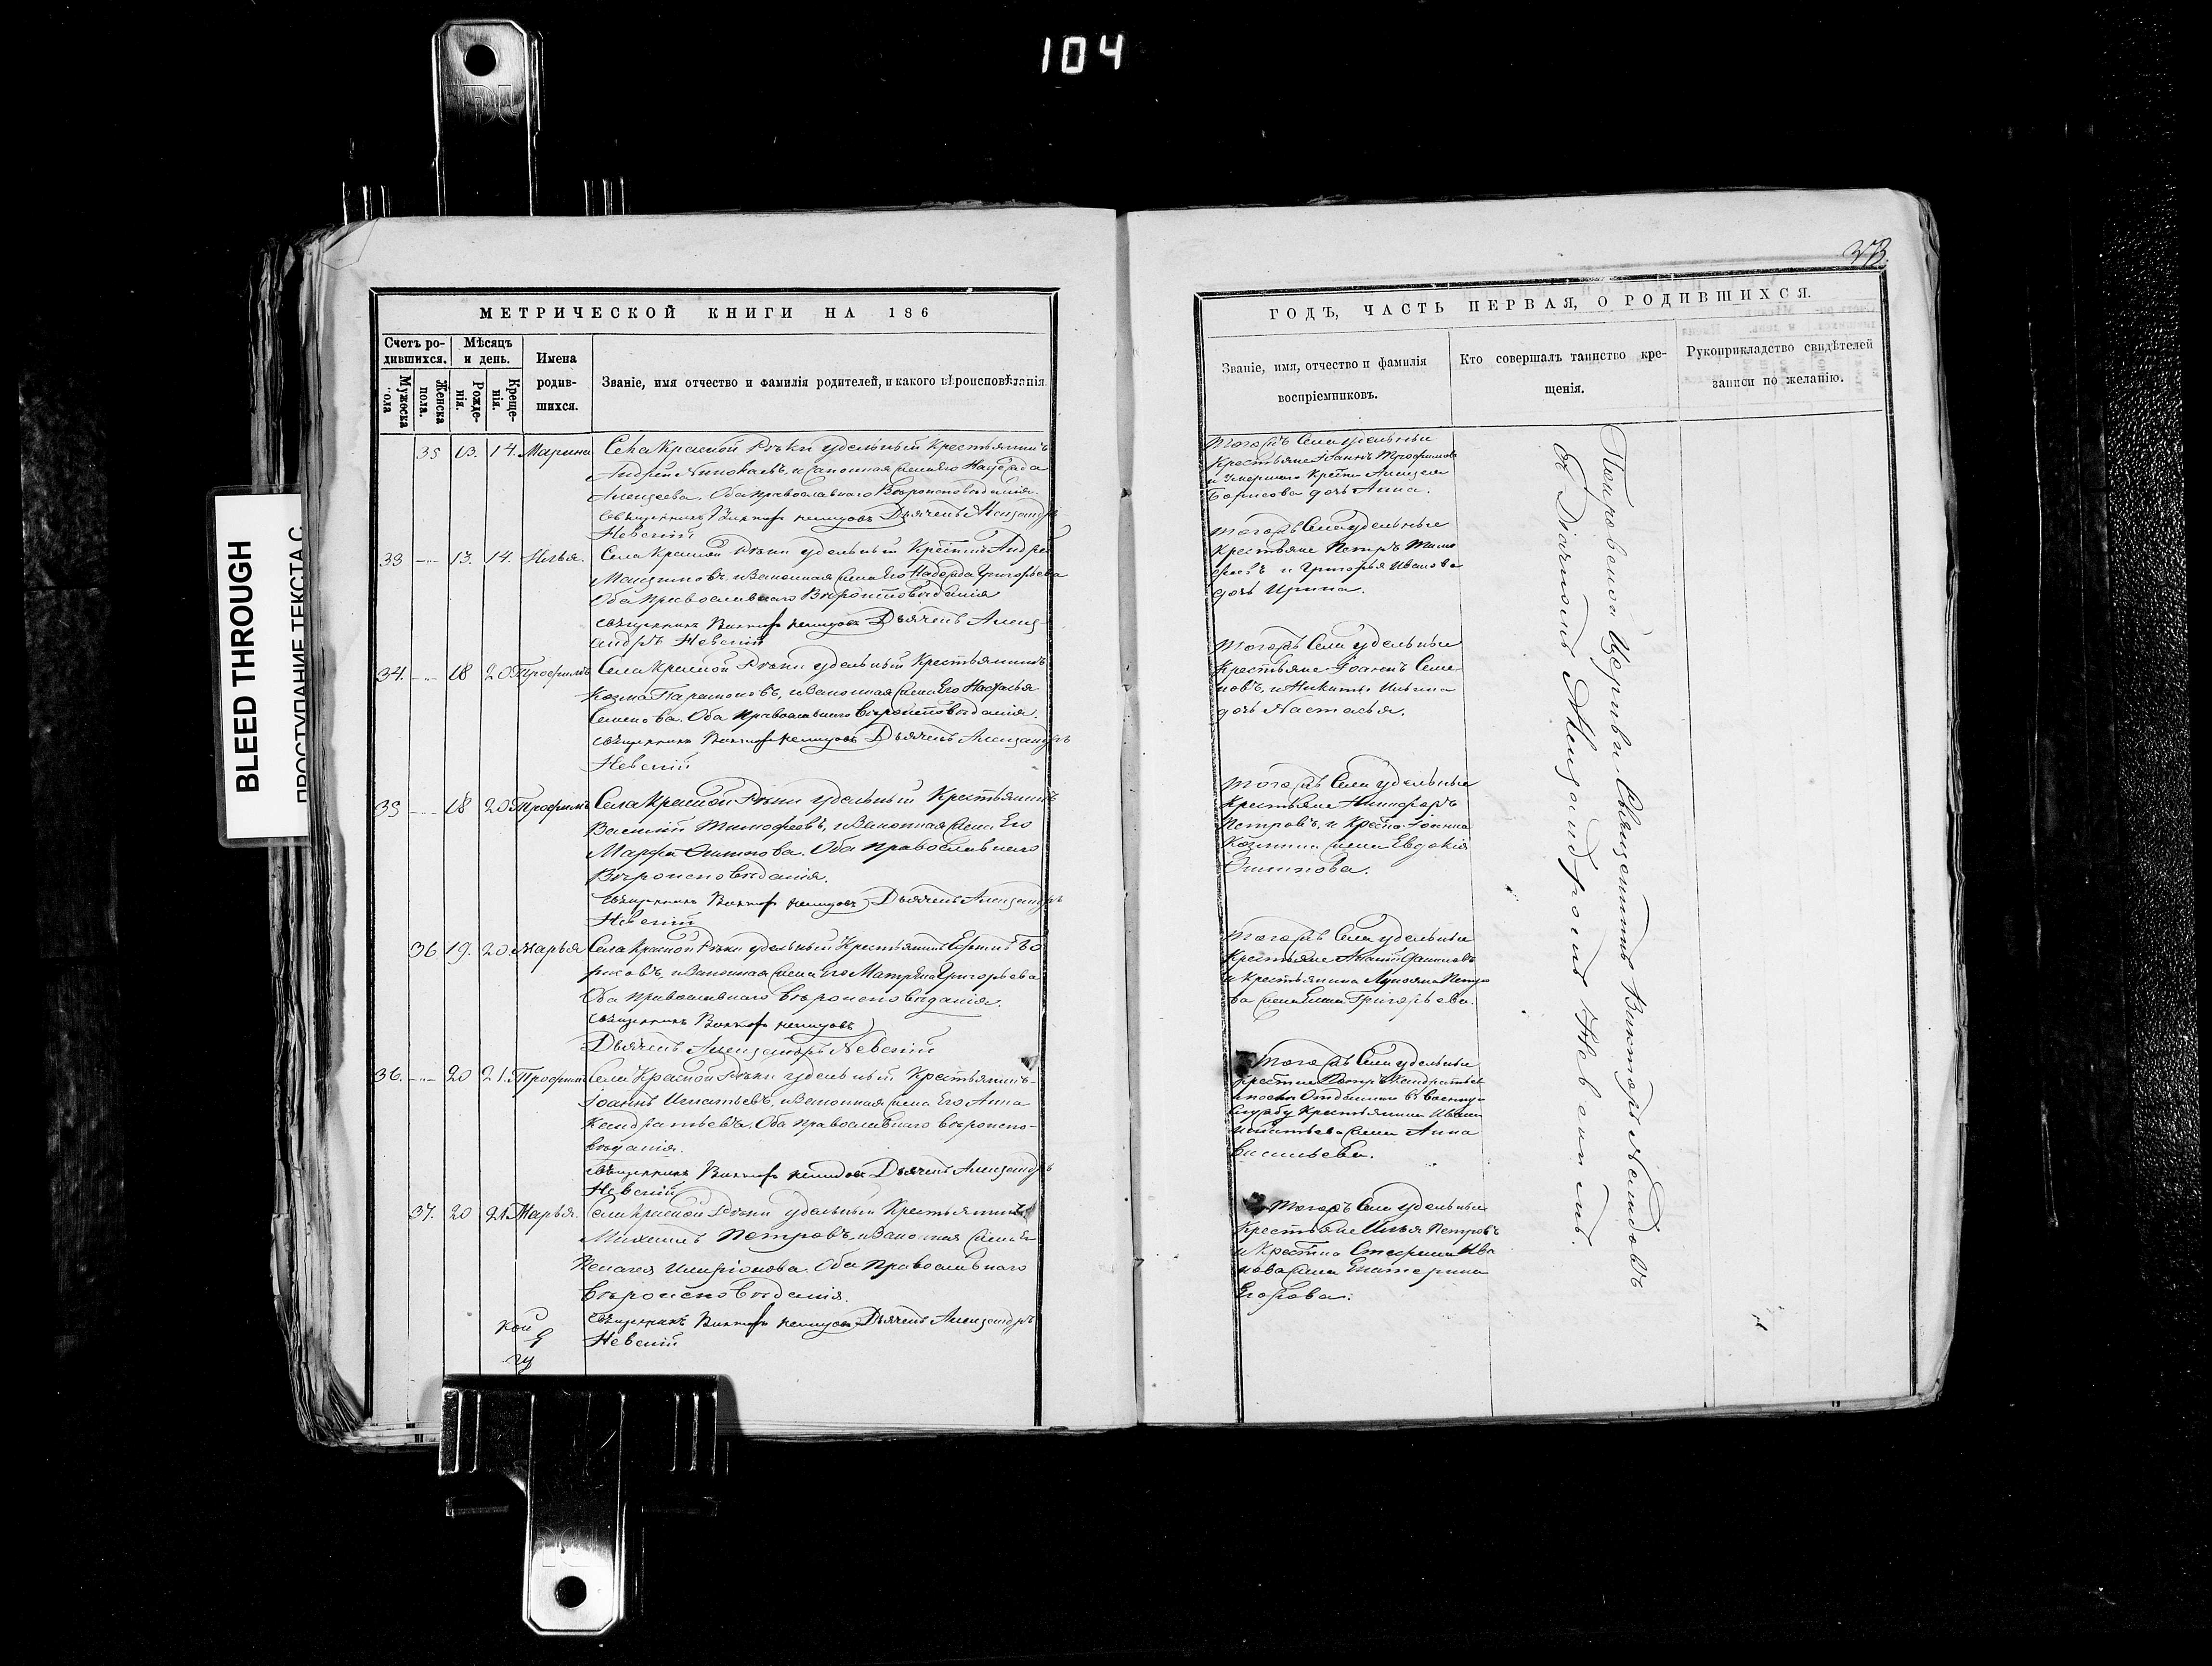 104
BLEED THROUGH
ПРОСТУПАНИЕ ТЕКСТА С
МЕТРИЧЕСКОЙ КНИГИ НА 186
Счетъ ро-
дившихся.
Мужоска
пола
Женска
пола.
Мѣсяцъ
и день.
Рожде-
нія.
Креще-
нія.
Имена
родив-
шихся.
Званіе, имя отчество и фамилія родителей, и какого вѣроисповѣданія.
35 13. 14. Марина
Села Красной Рѣки удельный Крестьянинъ
Андрей и Законная Жена Его Надежда
Алексеева. Оба православнаго Вѣроисповѣданія.
Священникъ Викторъ Немидовъ Дьячекъ Александръ
Невскій
33 13. 14. Илья.
Села Красной Рѣки удельный Крестнинъ Андрей
Максимовъ, и Законная Жена Его Надежда Григорьева
Оба Православнаго Вѣроисповѣданія
Священникъ Викторъ Немидовъ Дьячекъ Алекс
андръ Невскій
34. 18 20 Трофимъ
Села Красной Рѣки удельный Крестьянинъ
Козма Парамоновъ, и Законная Жена Его Наталья
Семенова. Оба православнаго Вѣроисповѣданія.
Священникъ Викторъ Немидовъ Дьячекъ Александръ
Невскій
35 18 20 Трофимъ
Села Красной Рѣки удельный Крестьянинъ
Василій Тимофеевъ, и Законная Жена Его
Марфа Оба православнаго
Вѣроисповѣданія.
Священникъ Викторъ Немидовъ Дьячекъ Александръ
Невскій
36 19. 20. Марья
Села Красной Рѣки удельный Крестьянинъ Ефимъ Бо
рисовъ, и Законная Жена Его Матрена Григорьева
Оба православнаго вѣроисповѣданія.
Священникъ Викторъ Немидовъ
Дьячекъ Александръ Невскій
36. 20 21. Трофимъ
Села Красной Рѣки удельный Крестьянинъ
Іоаннъ Игнатьевъ, и Законная Жена Его Анна
Кандратьева. Оба православнаго вѣроиспо-
вѣданія.
Священникъ Викторъ Немидовъ Дьячекъ Александръ
Невскій
37. 20 21. Марья.
Села Красной Рѣки удельный Крестьянинъ
Михаилъ Петровъ, и Законная Жена Ег
Пелагея Иларіонова. Оба Православнаго
вѣроисповѣданія.
Священникъ Викторъ Немидовъ Дьячекъ Александръ
Невскій
ГОДЪ, ЧАСТЬ ПЕРВАЯ, О РОДИВШИХСЯ.
Званіе, имя, отчество и фамилія
воспріемниковъ.
Кто совершалъ таинство кре-
щенія.
Рукоприкладство свидѣтелей
записи по желанію.
Тогожъ Села удельные
Крестьяне Іоаннъ Трофимовъ
и Умершаго Крестна Алексея
Борисова дочь Анна.
Тогожъ Села удельные
Крестьяне Петръ Тимо
феевъ и Григорья Иванова
дочь Ирина.
Тогожъ Села удельные
Крестьяне Іоаннъ Семе
новъ, и Никиты Ильина
дочь Настасья.
Тогожъ Села удельные
Крестьяне Никифоръ
Петровъ, и Крестна Іоанна
Козмина Жена Евдокія
Тогожъ Села удельные
Крестьяне
и Крестьянина Лукояна Петро
ва Жена Елена Григорьева.
Тогожъ Села удельные
Крестне Петръ Кандратьевъ
Отданнаго въ Военную
Службу Крестьянина Ивана
Игнатьева Жена Анна
Васильева.
Тогожъ Села удельные
Крестьяне Илья Петровъ
и Крестна Стефана Ива
нова Жена Екатерина
Егорова.
Покровской Церкви Священникъ Викторъ Немидовъ
съ Діачкомъ Александромъ Невскимъ.